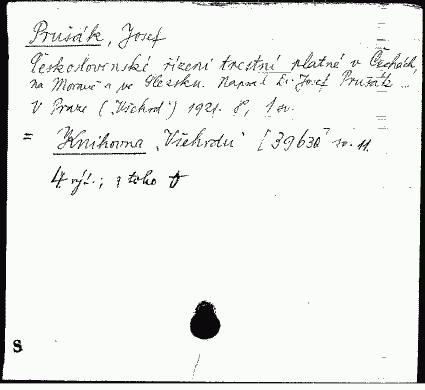 Prušák, Josef
Československé řízení trestní platné v Čechách,
na Moravě a ve Slezsku. Napsal Dr. Josef Prušák ...
V Praze („Všehrd“) 1921. 8°, 1 sv.
= Knihovna „Všehrdu“ [39630 sv. 11.
4 výt.; z toho
S